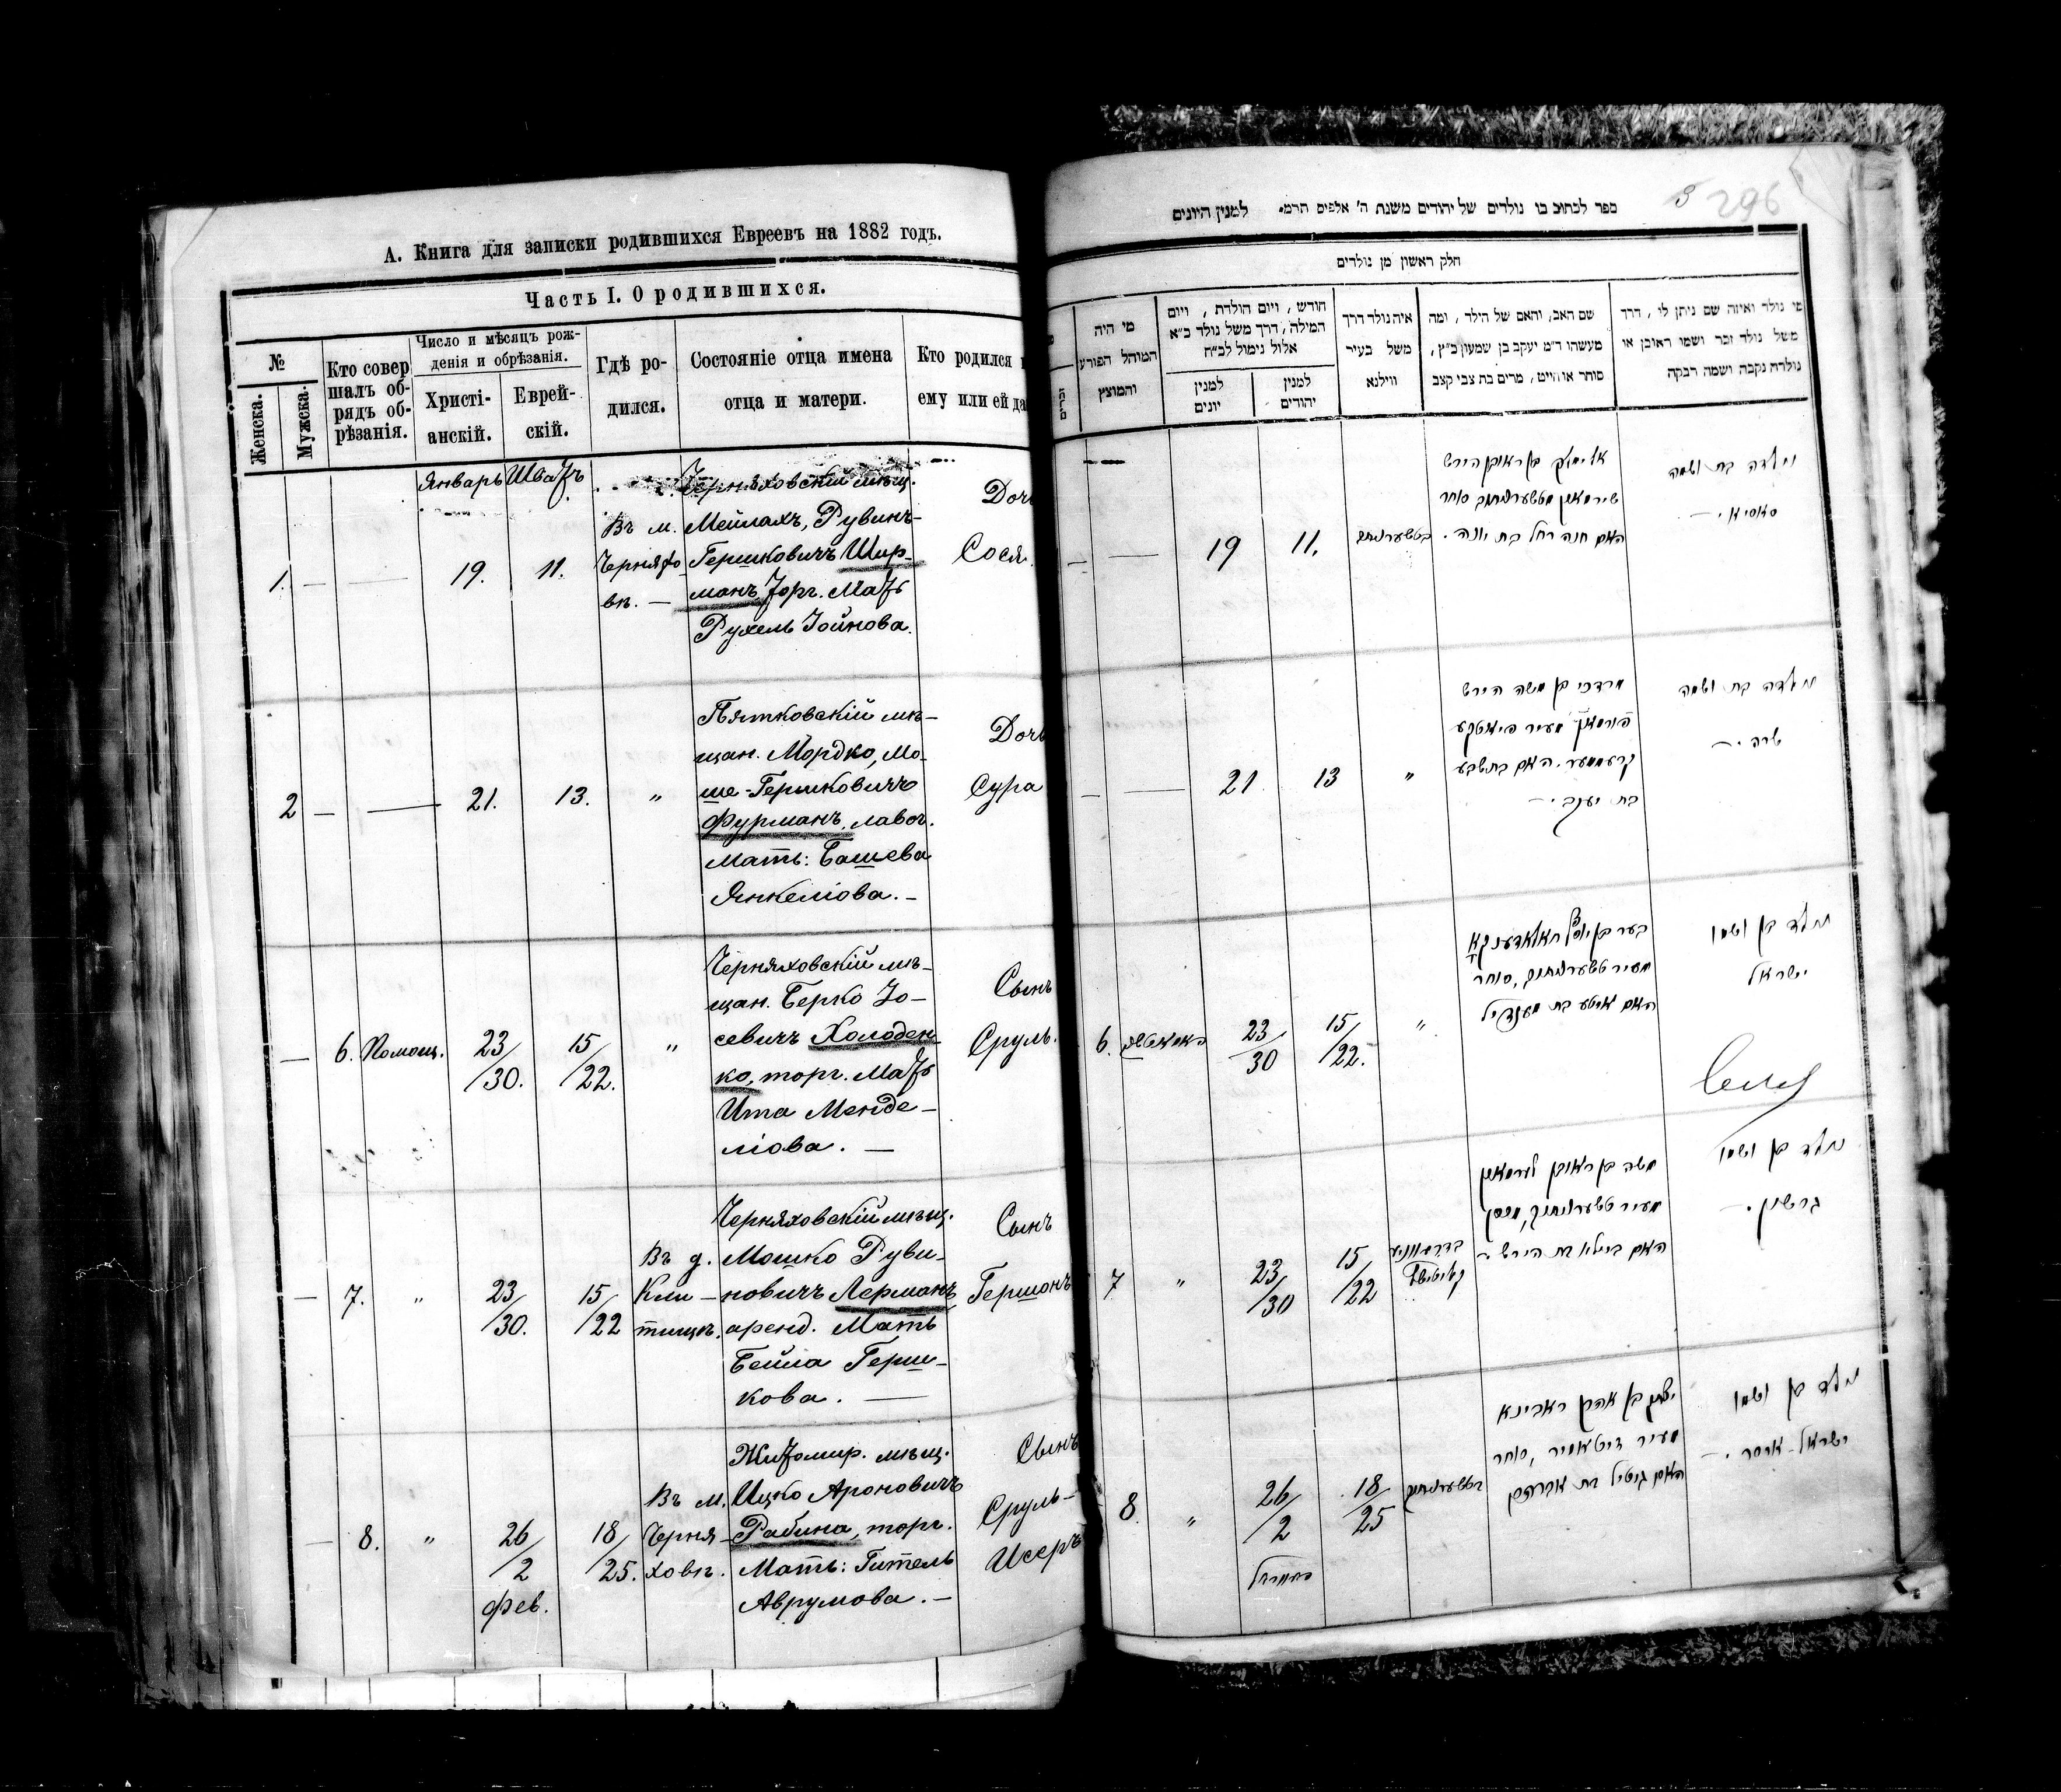 А. Книга для записки родившихся Евреевъ на 1882 годъ.
Часть I. О родившихся.
№
Женска.
Мужска.
Кто совер
шалъ об-
рядъ об-
рѣзанія.
Число и мѣсяцъ рож-
денія и обрѣзанія.
Христі-
анскій.
Еврей-
скій.
Гдѣ ро-
дился.
Состояніе отца имена
отца и матери.
Кто родился
ему или ей да
Январь Шватъ
1. — — 19. 11.
Въ м.
Черняхо
вѣ. —
Черняховскій мѣщ.
Мейлахъ, Рувинъ-
Гершковичъ Шир-
манъ, торг. Мать
Рухель Іойнова.
Дочь
Сося.
2 — — 21. 13. „
Пятковскій мѣ-
щан. Мордко, Мо-
ше-Гершковичъ
Фурманъ, лавоч.
Мать: Башева
Янкеліова. —
Дочь
Сура
— 6. Помощ. 23/30. 15/22. „
Черняховскій мѣ-
щан. Берко Іо-
севичъ Холоден-
ко, торг. Мать
Ита Менде-
ліова. —
Сынъ
Сруль.
— 7. „ 23/30. 15/22
Въ д.
Кли-
тищѣ.
Черняховскій мѣщ.
Мошко Руви-
новичъ Лерманъ
аренд. Мать
Бейла Герш-
кова. —
Сынъ
Гершонъ
— 8. „ 26/2 18/25.
Фев.
Въ м.
Черня-
ховѣ.
Житомир. мѣщ.
Ицко Ароновичъ
Рабина, торг.
Мать: Гитель
Аврумова. —
Сынъ
Сруль-
Исеръ
ספר לכתוב בו נולדים של יהודים משנת ה' אלפים תרמ״ למנין היונים
3 296
חלק ראשון מן נולדים
מי היה
המוהל הפורע
והמוצץ
חודש, ויום הולדת, ויום
המילה, דרך משל נולד כ״א
אלול נימול לכ״ח
למנין
יונים
למנין
יהודים
איה נולד דרך
משל בעיר
ווילנא
שם האב, והאם של הילד, ומה
מעשהו ד״מ יעקב בן שמעון כ״ץ,
סוחר או חייט, מרים בת צבי קצב
מי נולד ואיזה שם ניתן לו, דרך
משל נולד זכר ושמו ראובן או
נולדה נקבה ושמה רבקה
— — 19 11.
אלימלך בן ראובן הירש
שירמאן מטשערניחוב סוחר
האם חנה רחל בת יונה.
נולדה בת ושמה
סאסיא. —
— — 21 13 „
מרדכי בן משה הירש
פורמאן מעיר פיאטקע
קרעמער. האם בתשבע
בת יעקב. —
נולדה בת ושמה
שרה. —
6. 23/30 15/22. „
בער בן יוסף חאלאדענקא
מעיר טשערניחוב, סוחר
האם איטע בת מענדיל
נולד בן ושמו
ישראל
7 „ 23/30 15/22
משה בן ראובן לערמאן
מעיר טשערניחוב,
האם ביילא בת הירש. —
נולד בן ושמו
גרשון. —
8. „ 26/2 18/25
יצחק בן אהרן ראבינא
מעיר זיטאמיר, סוחר
האם גיטיל בת אברהם
נולד בן ושמו
ישראל-איסר. —